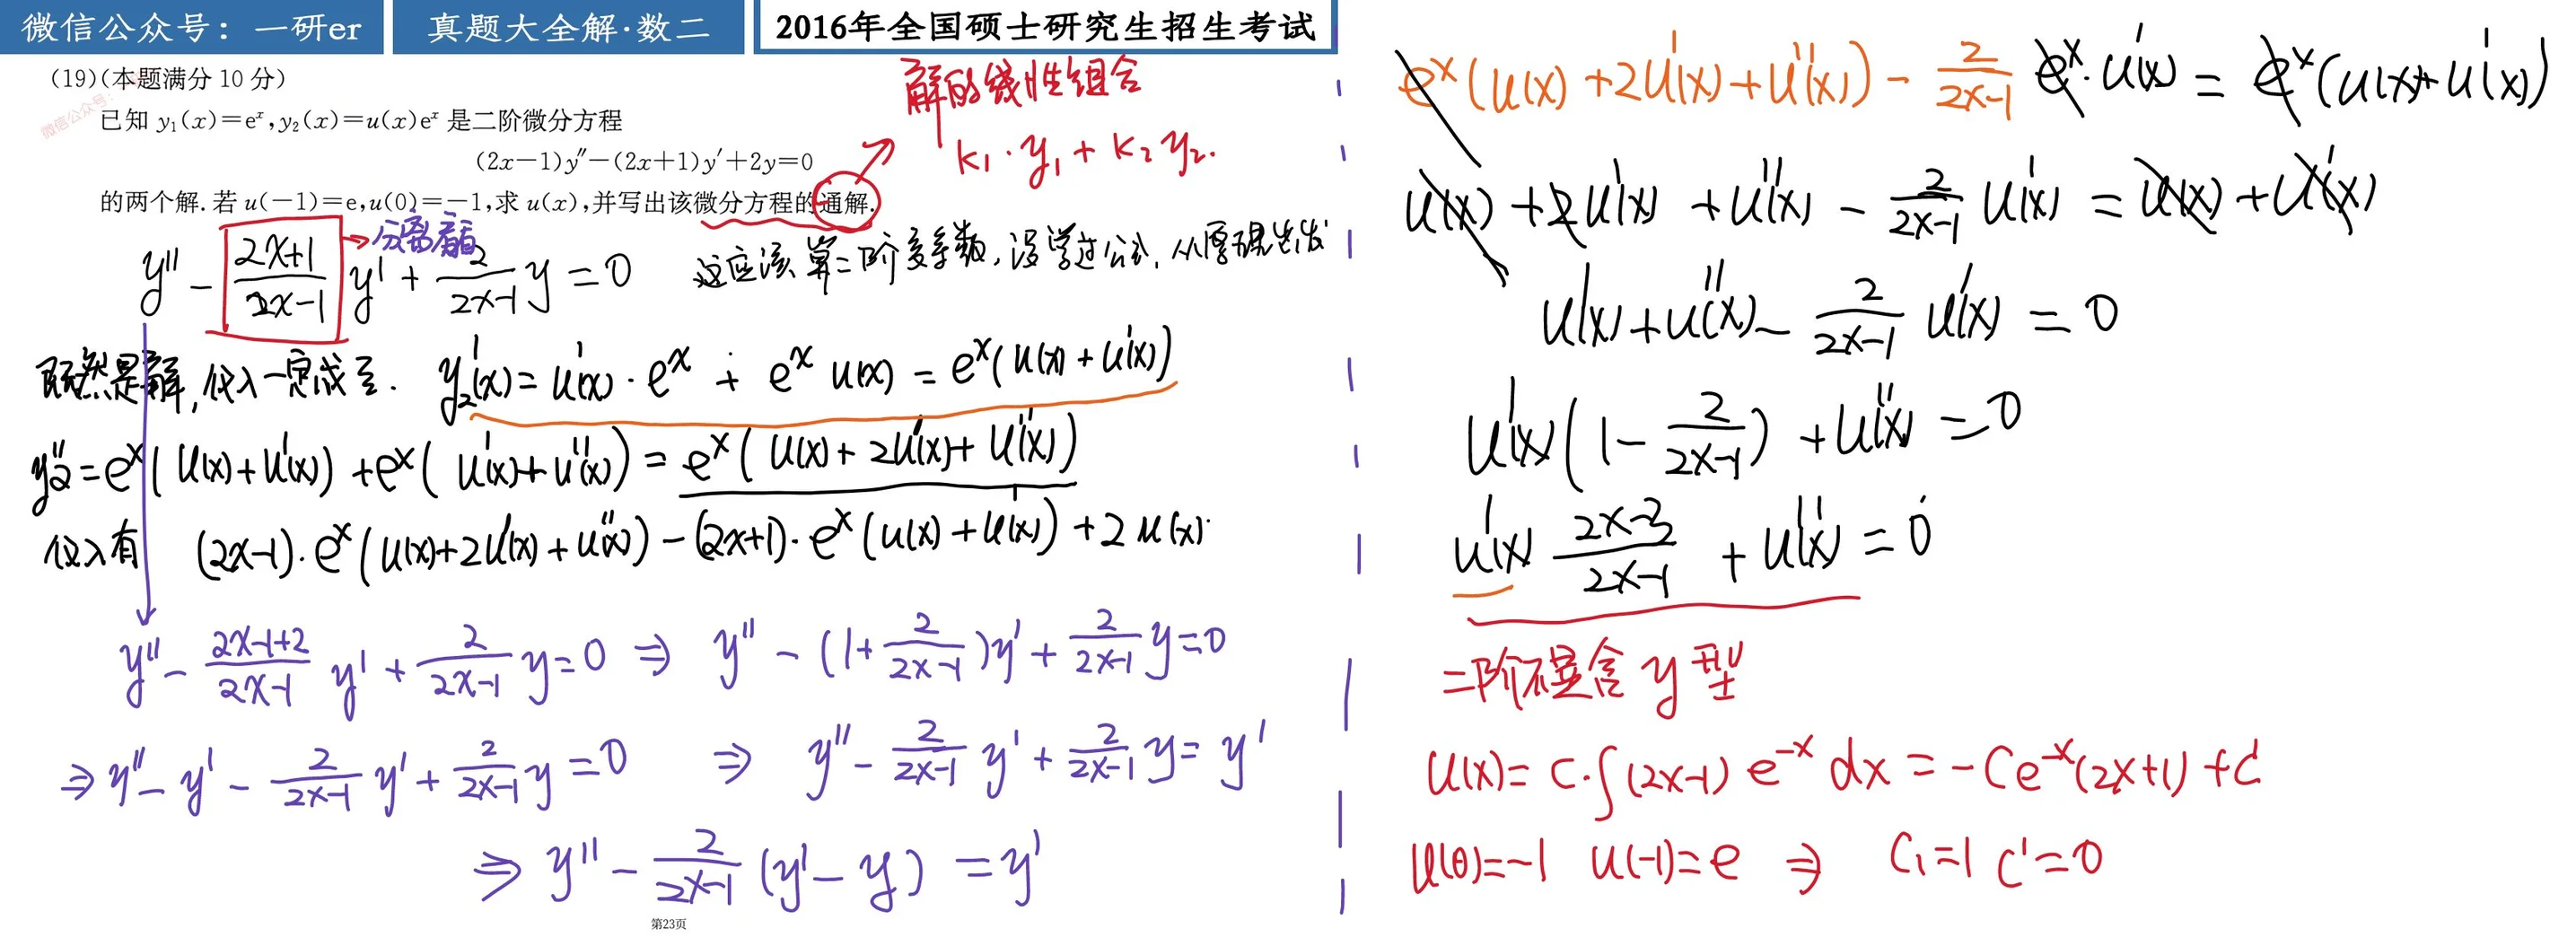 微信公众号：一研er
真题大全解·数二
2016年全国硕士研究生招生考试
(19)(本题满分 10 分)
已知 y₁(x)=eˣ,y₂(x)=u(x)eˣ 是二阶微分方程
(2x−1)y″−(2x+1)y′+2y=0
的两个解.若 u(−1)=e,u(0)=−1,求 u(x),并写出该微分方程的通解.
微信公众号：
解的线性组合
k₁·y₁+k₂y₂.
分离
y″ − (2x+1)/(2x−1) y′ + 2/(2x−1) y = 0
这应该算二阶变系数,没学过公式,从原理出发
既然是解,代入一定成立. y₂′(x)=u′(x)·eˣ + eˣ u(x) = eˣ(u(x)+u′(x))
y₂″=eˣ(u(x)+u′(x))+eˣ(u′(x)+u″(x))=eˣ(u(x)+2u′(x)+u″(x))
代入有 (2x−1)·eˣ(u(x)+2u′(x)+u″(x))−(2x+1)·eˣ(u(x)+u′(x))+2u(x)·
y″ − (2x−1+2)/(2x−1) y′ + 2/(2x−1) y=0 ⇒ y″ − (1+2/(2x−1))y′ + 2/(2x−1) y=0
⇒ y″ − y′ − 2/(2x−1) y′ + 2/(2x−1) y=0 ⇒ y″ − 2/(2x−1) y′ + 2/(2x−1) y= y′
⇒ y″ − 2/(2x−1) (y′−y) = y′
第23页
eˣ(u(x)+2u′(x)+u″(x)) − 2/(2x−1) eˣ·u′(x) = eˣ(u(x)+u′(x))
u(x)+2u′(x)+u″(x) − 2/(2x−1) u′(x) = u(x)+u′(x)
u′(x)+u″(x) − 2/(2x−1) u′(x) = 0
u′(x)(1− 2/(2x−1)) + u″(x) = 0
u′(x) (2x−3)/(2x−1) + u″(x) = 0
二阶不显含 y 型
u(x)= C·∫(2x−1) e⁻ˣ dx = −Ce⁻ˣ(2x+1) + C′
u(0)=−1 u(−1)=e ⇒ C₁=1 C′=0